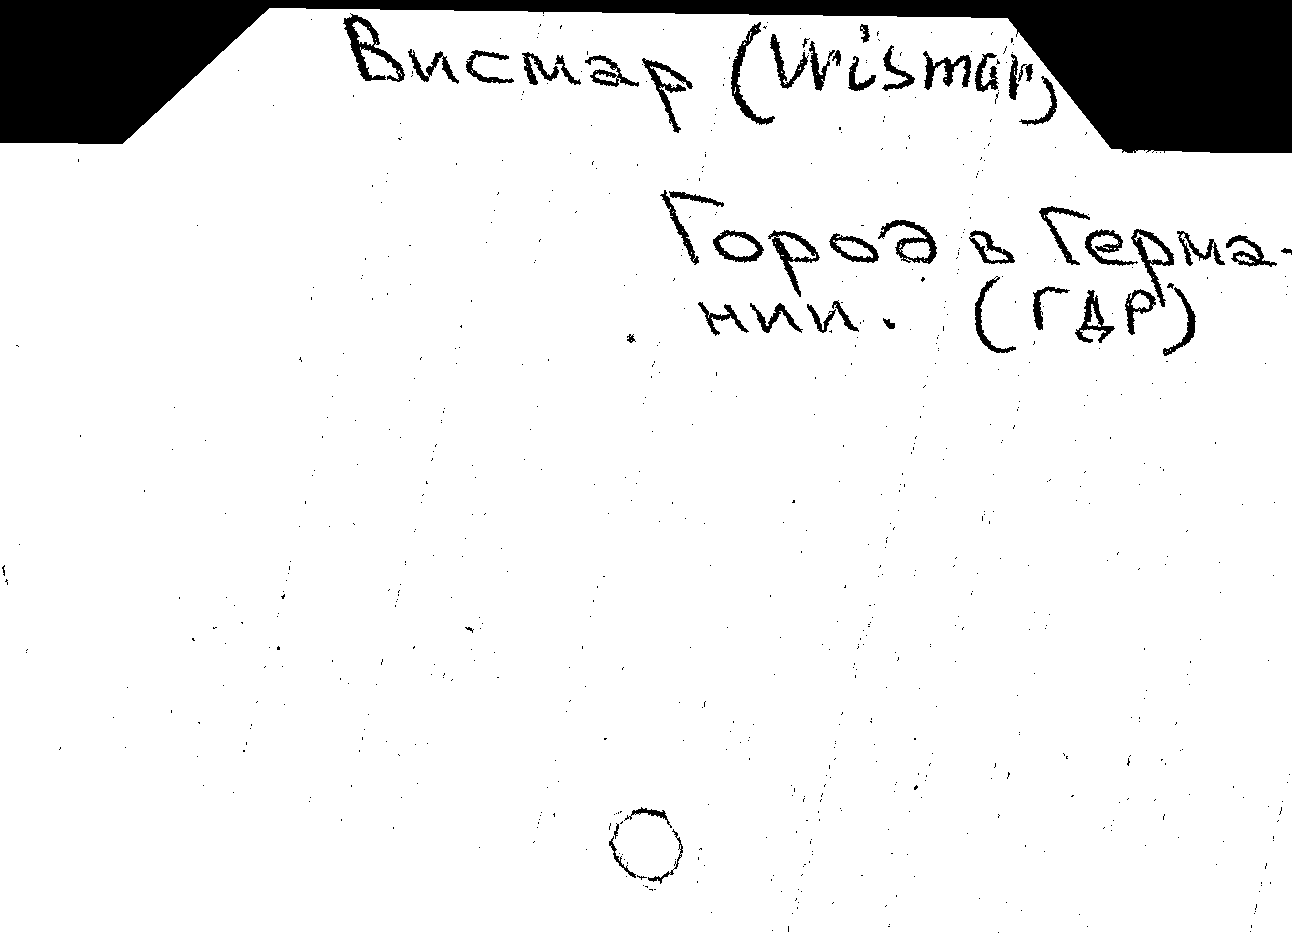 Висмар (Wismar)
Город в Герма-
нии. (ГДР)